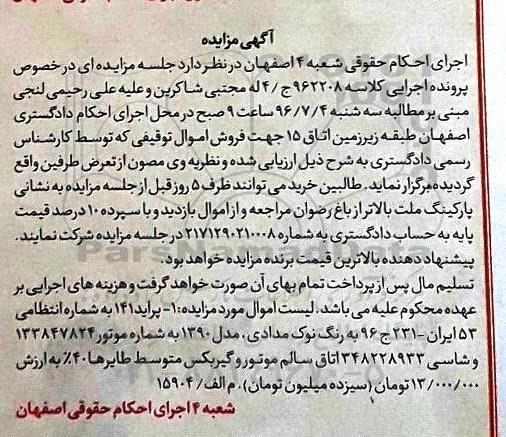 آگهی مزایده
اجرای احکام حقوقی شعبه ۴ اصفهان در نظر دارد جلسه مزایده ای در خصوص
پرونده اجرایی کلاسه ۹۶۲۲۰۸ ج/۴ له مجتبی شاکرین و علیه علی رحیمی لنجی
مبنی بر مطالبه سه شنبه ۹۶/۷/۴ ساعت ۹ صبح در محل اجرای احکام دادگستری
اصفهان طبقه زیرزمین اتاق ۱۵ جهت فروش اموال توقیفی که توسط کارشناس
رسمی دادگستری به شرح ذیل ارزیابی شده و نظریه وی مصون از تعرض طرفین واقع
گردیده برگزار نماید. طالبین خرید می توانند ظرف ۵ روز قبل از جلسه مزایده به نشانی
پارکینگ ملت بالاتر از باغ رضوان مراجعه و از اموال بازدید و با سپرده ۱۰ درصد قیمت
پایه به حساب دادگستری به شماره ۲۱۷۱۲۹۰۲۱۰۰۰۸ در جلسه مزایده شرکت نمایند.
پیشنهاد دهنده بالاترین قیمت برنده مزایده خواهد بود.
تسلیم مال پس از پرداخت تمام بهای آن صورت خواهد گرفت و هزینه های اجرایی بر
عهده محکوم علیه می باشد. لیست اموال مورد مزایده: ۱- پراید ۱۴۱ به شماره انتظامی
۵۳ ایران -۲۳۱ ج ۹۶ به رنگ نوک مدادی، مدل ۱۳۹۰ به شماره موتور ۱۳۳۸۴۷۸۲۴
و شاسی ۳۴۸۲۲۸۹۳۳ اتاق سالم موتور و گیربکس متوسط طایرها ۴۰٪ به ارزش
۱۳/۰۰۰/۰۰۰ تومان (سیزده میلیون تومان). م الف/ ۱۵۹۰۴
شعبه ۴ اجرای احکام حقوقی اصفهان
ParsNamadData